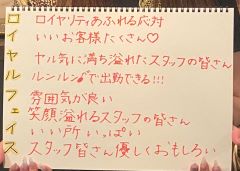 ロイヤルフェイス
ロイヤリティあふれる応対
いいお客様たくさん♡
ヤル気に満ち溢れたスタッフの皆さん
ルンルン♪で出勤できる!!!
雰囲気が良い
笑顔溢れるスタッフの皆さん
いい所いっぱい
スタッフ皆さん優しくおもしろい